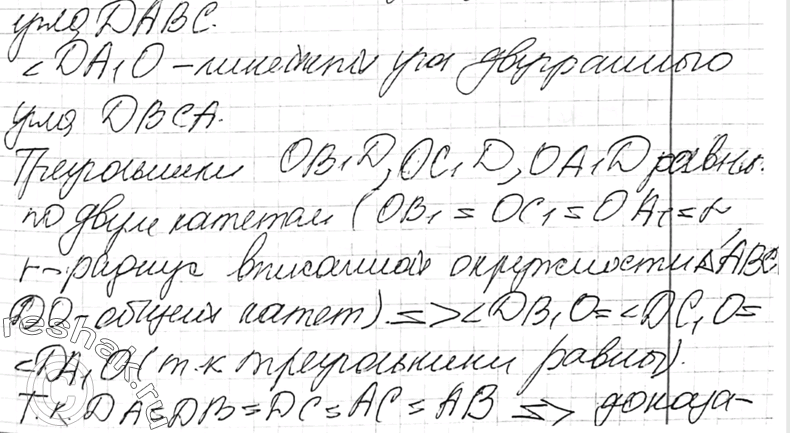 угла DABC.
∠DA₁O – линейный угол двугранного
угла DBCA.
Треугольники OB₁D, OC₁D, OA₁D равны
по двум катетам (OB₁ = OC₁ = OA₁ = r
r – радиус вписанной окружности △ABC,
DO – общий катет). => ∠DB₁O = ∠DC₁O =
∠DA₁O (т.к треугольники равны).
Т.к DA = DB = DC = AC = AB => доказа-
reshak.ru